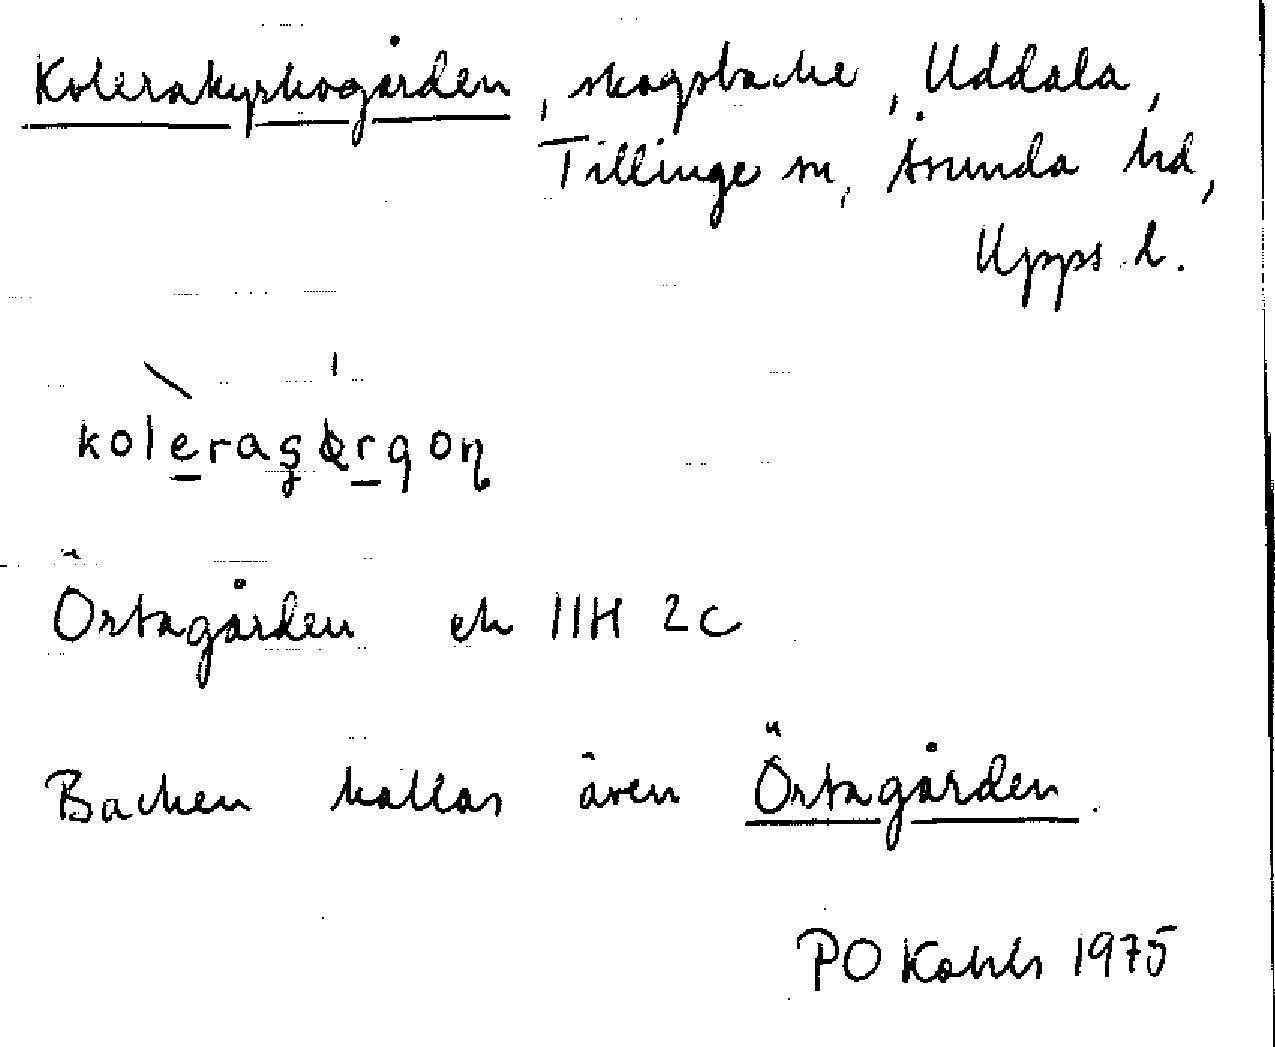 Kolerakyrkogården, skogsbacke, Uddala,
Tillinge sn, Åsunda hd,
Upps. l.
Örtagården ek 11H 2c
Backen kallas även Örtagården.
PO 1975